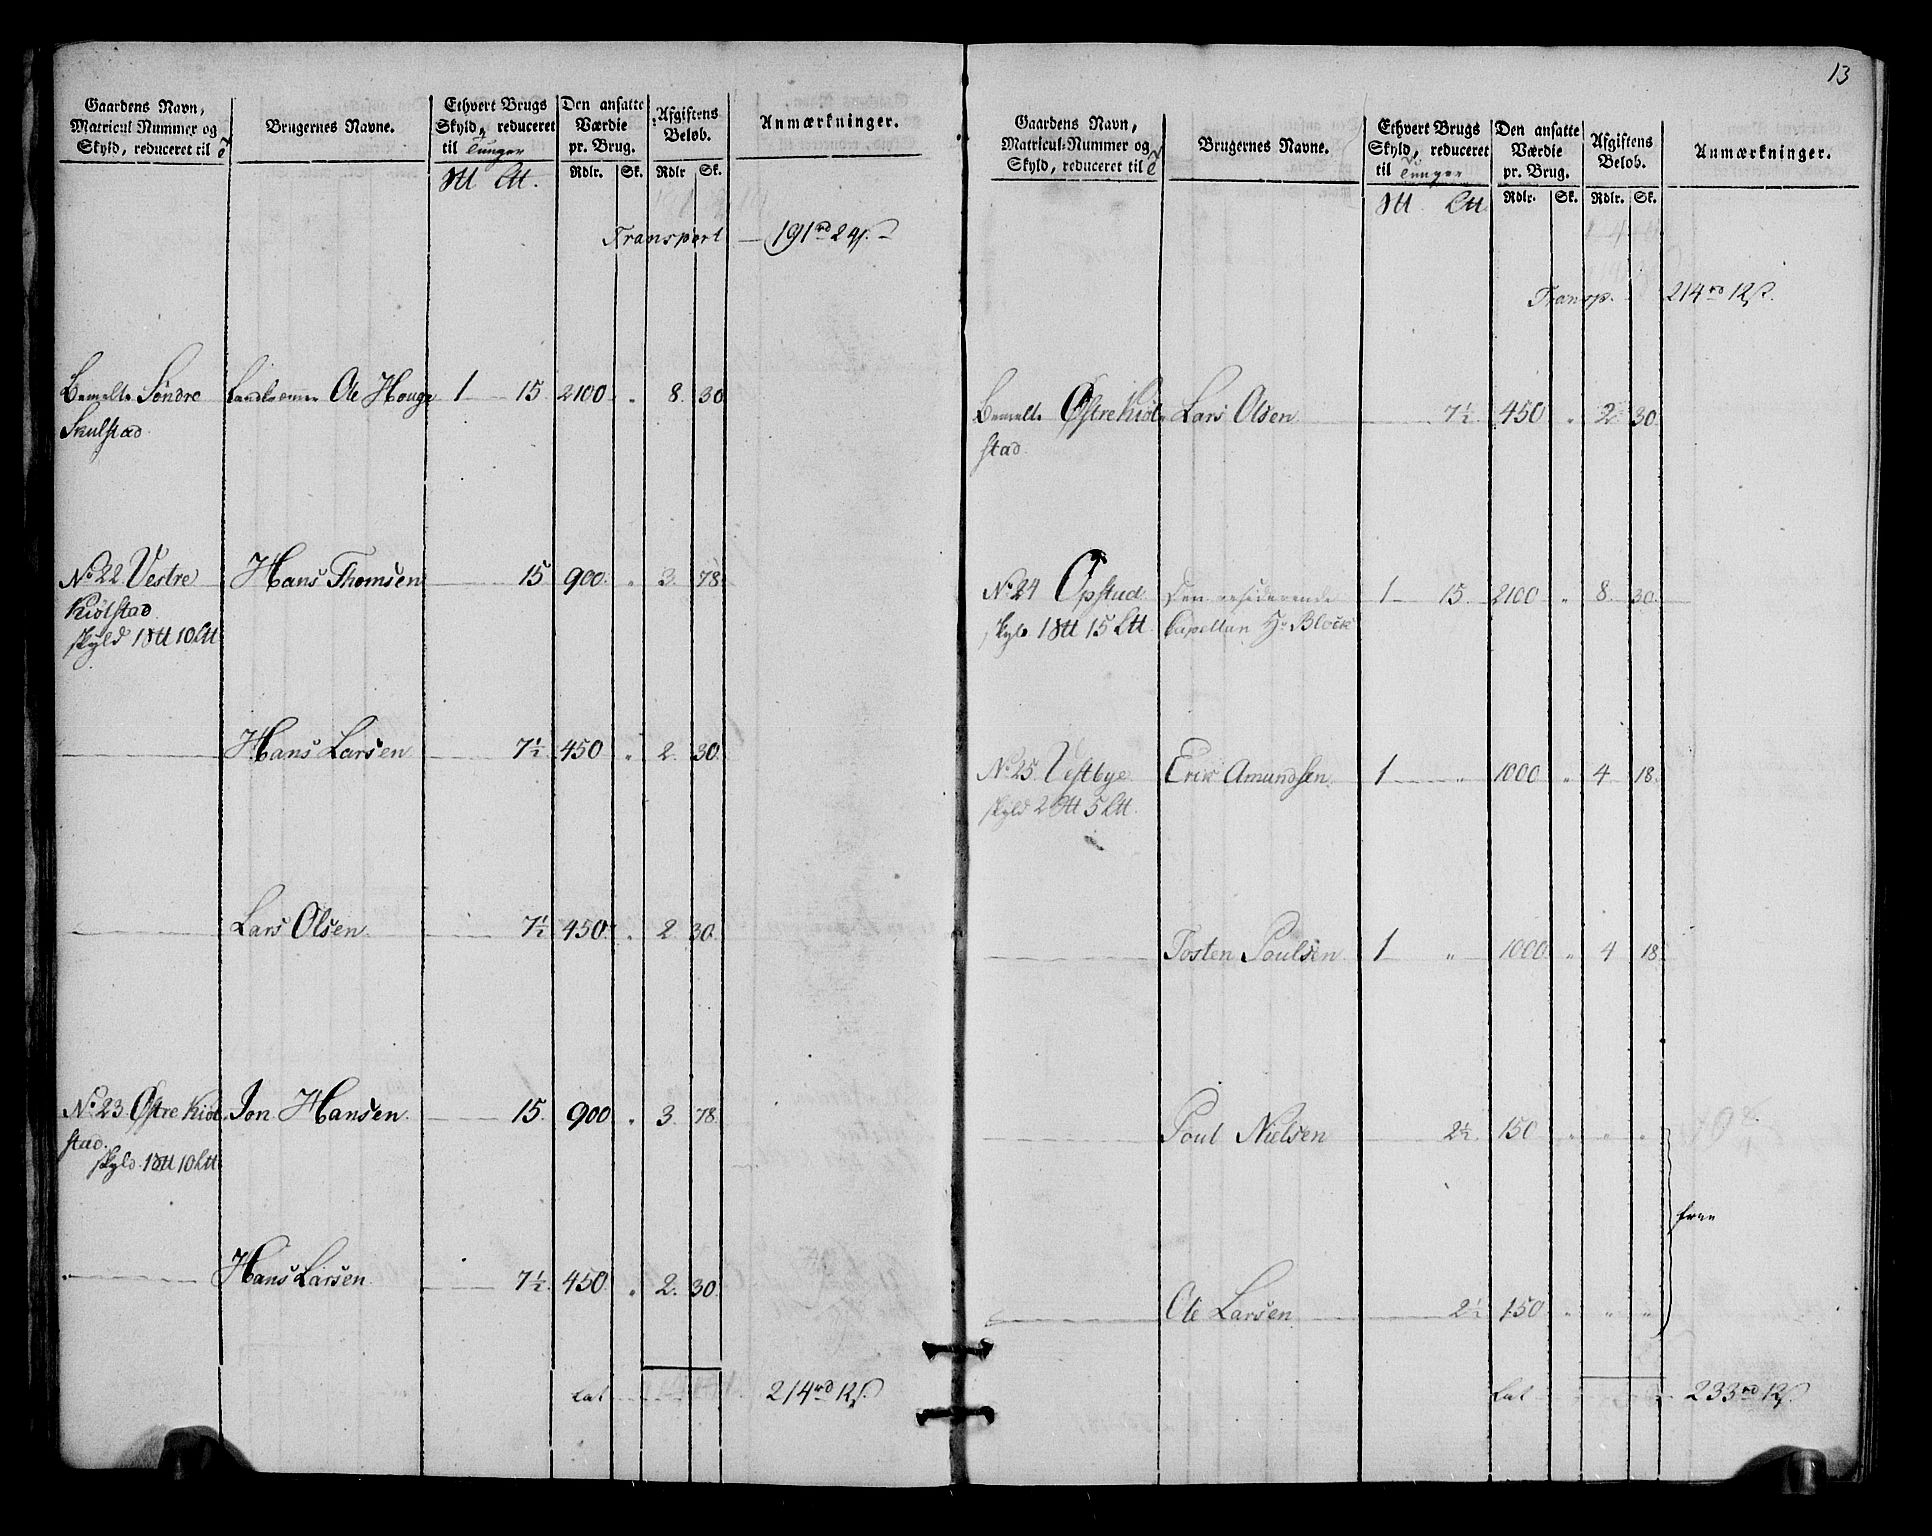 Gaardens Navn,
Matricul Nummer og
Skyld, reduceret til
Brugernes Navne.
Ethvert Brugs
Skyld, reduceret
til Tunger
Den ansatte
Værdie
pr. Brug.
Rdlr. Sk.
Afgiftens
Beløb.
Rdlr Sk.
Anmærkninger.
Transport 191 rd 24 s.
Bemelte Søndre Ole Houge 1 15 2100 " 8. 30
Skulstad
No. 22 Vestre Hans Thomsen 15 900. " 3. 78.
Kiølstad
skyld 1 10
Hans Larsen 7½ 450 " 2. 30.
Lars Olsen 7½ 450. " 2. 30.
No. 23 Østre Kiøl Jon Hansen 15. 900 " 3. 78.
stad
skyld 1 10
Hans Larsen 7½ 450 " 2. 30.
Lat 214 rd 12 s.
13
Gaardens Navn,
Matricul-Nummer og
Skyld, reduceret til
Brugernes Navne.
Ethvert Brugs
Skyld, reduceret
til Tunger
Den ansatte
Værdie
pr. Brug.
Rdlr. Sk.
Afgiftens
Beløb.
Rdlr. Sk.
Anmærkninger.
Transp. 214 rd 12 s.
Bemelte Østre Kiøl Lars Olsen 7½ 450 " 2 30.
stad.
No. 24 Opstad Den residerende 1 15. 2100 " 8. 30.
skyld 1 15 Capellan Hr Block
No. 25. Vestbye Erik Amundsen 1 " 1000 " 4 18.
skyld 2 5
Tosten Poulsen 1 " 1000. " 4 18.
Poul Nielsen 2½ 150 " " "
frie
Ole Larsen 2½ 150 " " "
Lat 233 rd 12 s.